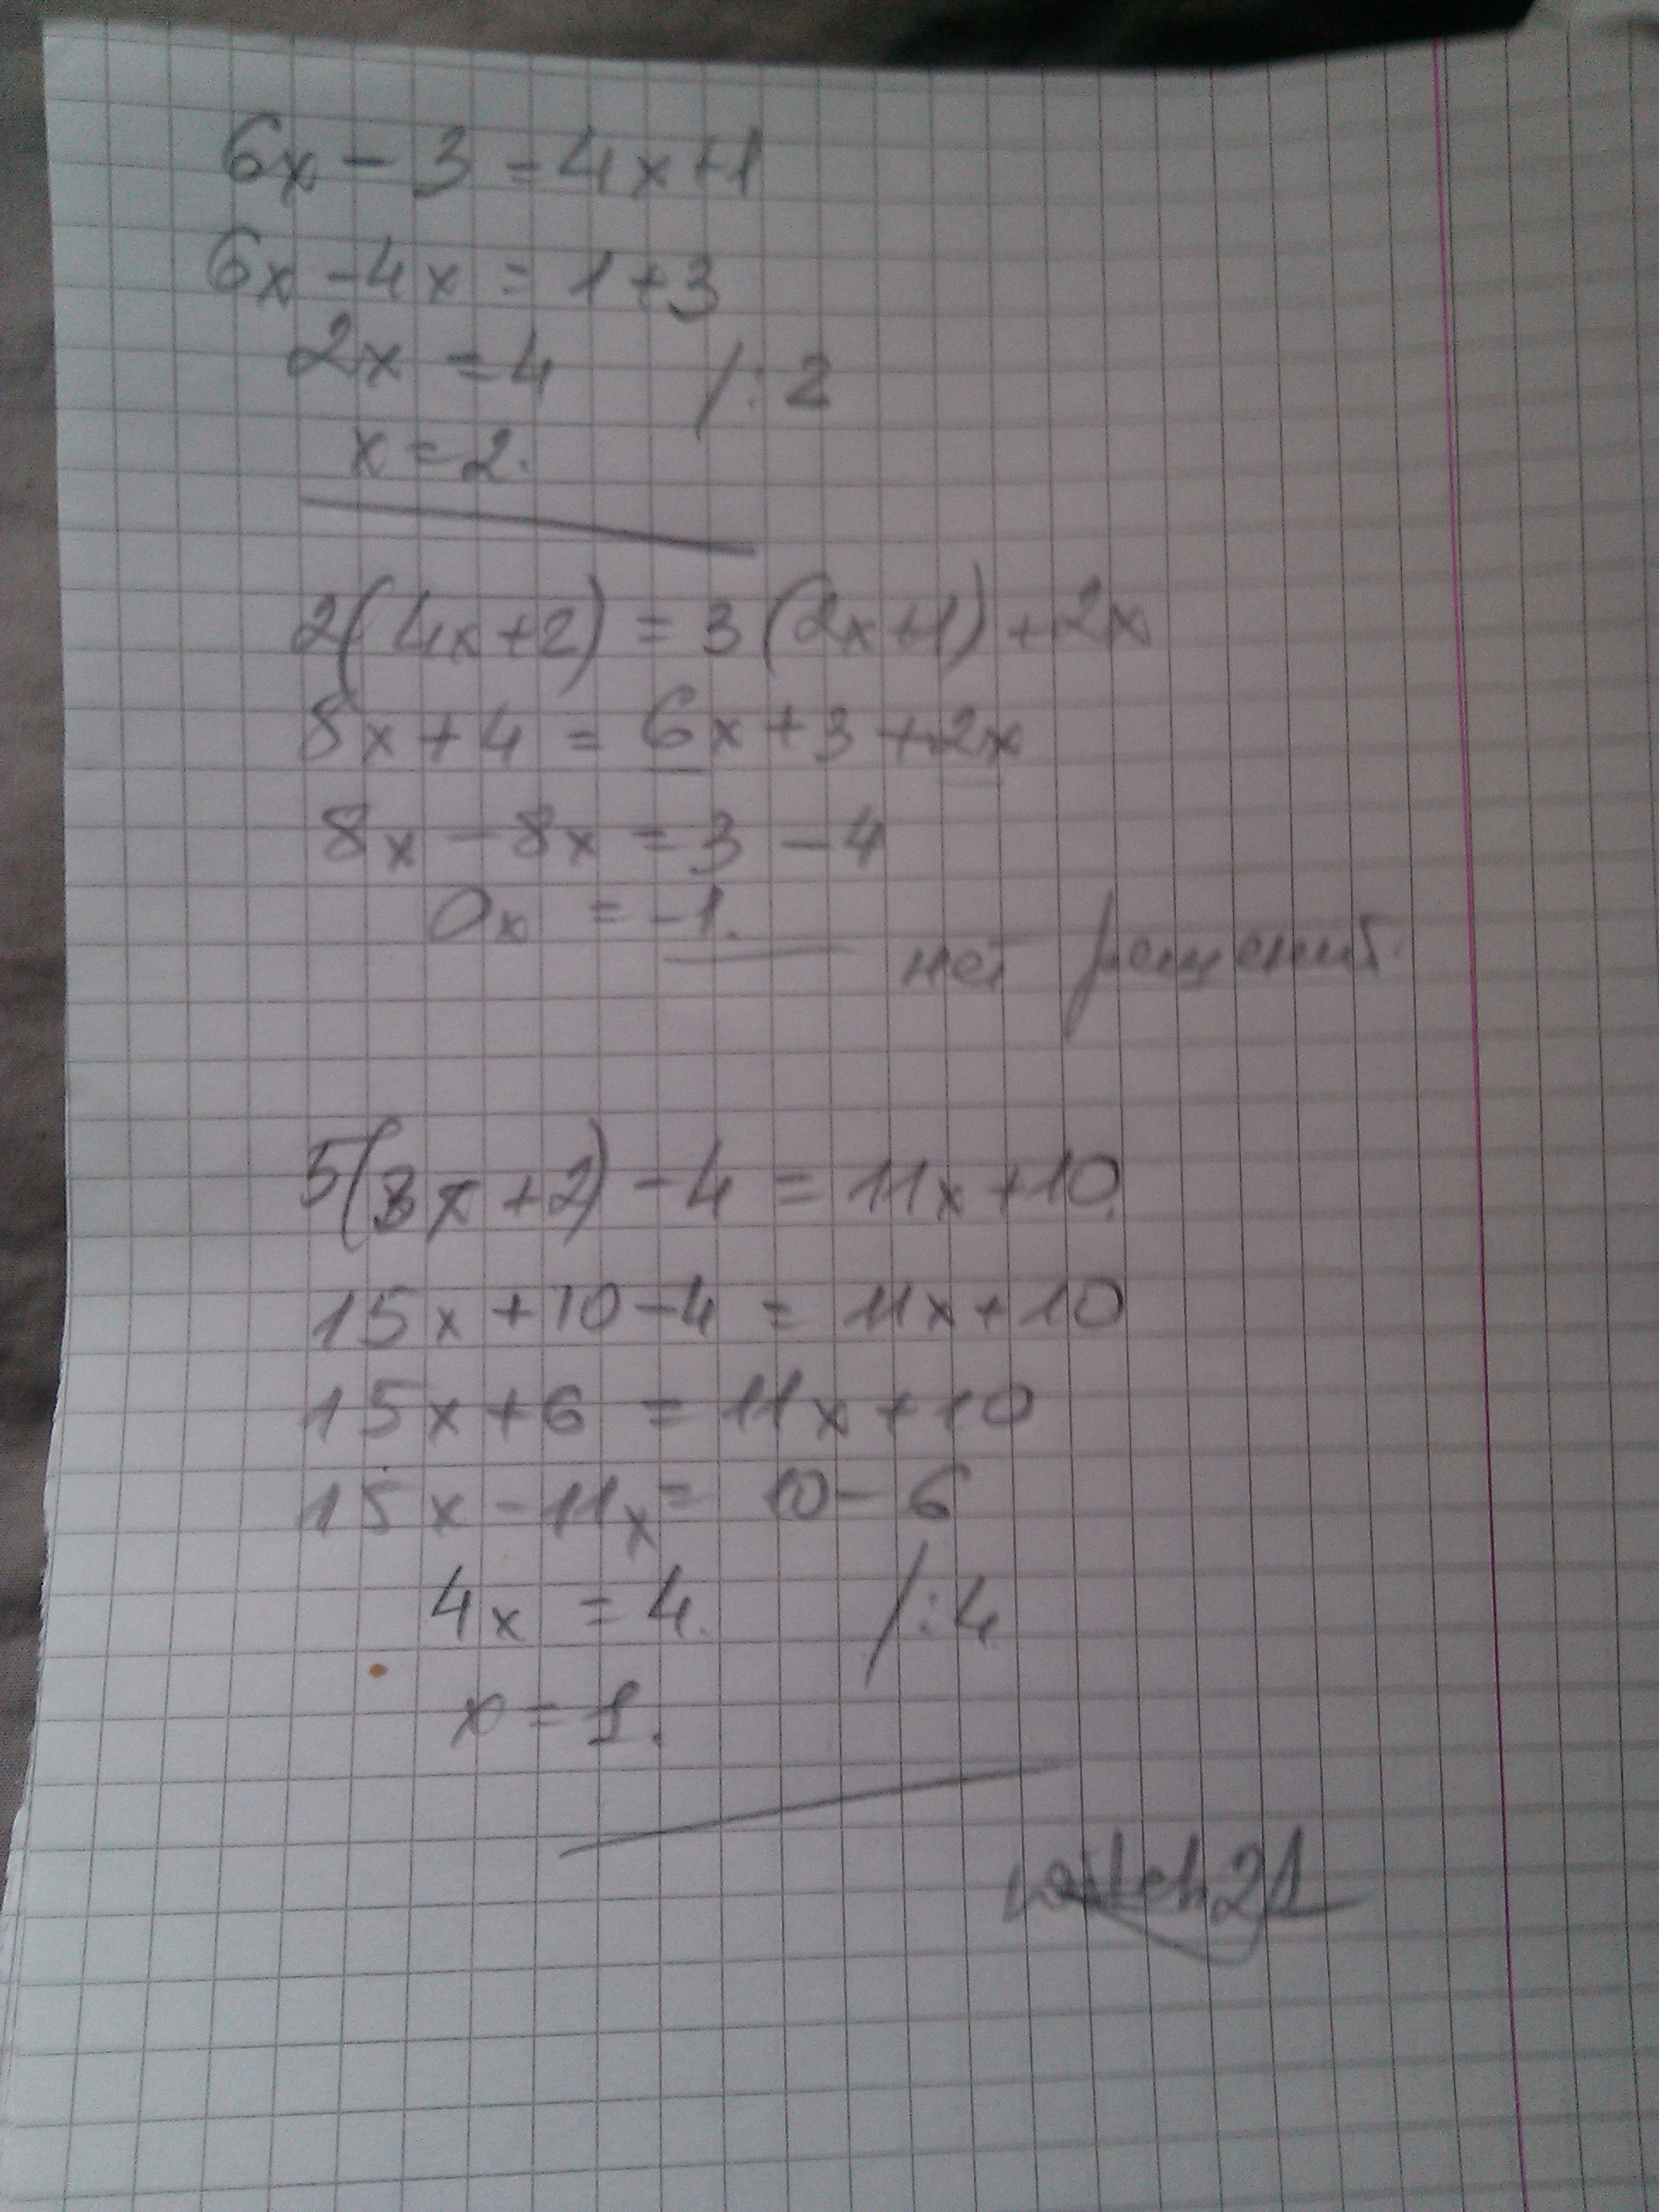 6x - 3 = 4x+1
6x - 4x = 1+3
2x = 4 /:2
x = 2.
2(4x+2) = 3(2x+1)+2x
8x+4 = 6x+3+2x
8x - 8x = 3 - 4
0x = -1.
нет решений.
5(3x+2) - 4 = 11x+10.
15x+10-4 = 11x+10
15x+6 = 11x+10
15x - 11x = 10 - 6
4x = 4. /:4
x = 1.
witch21